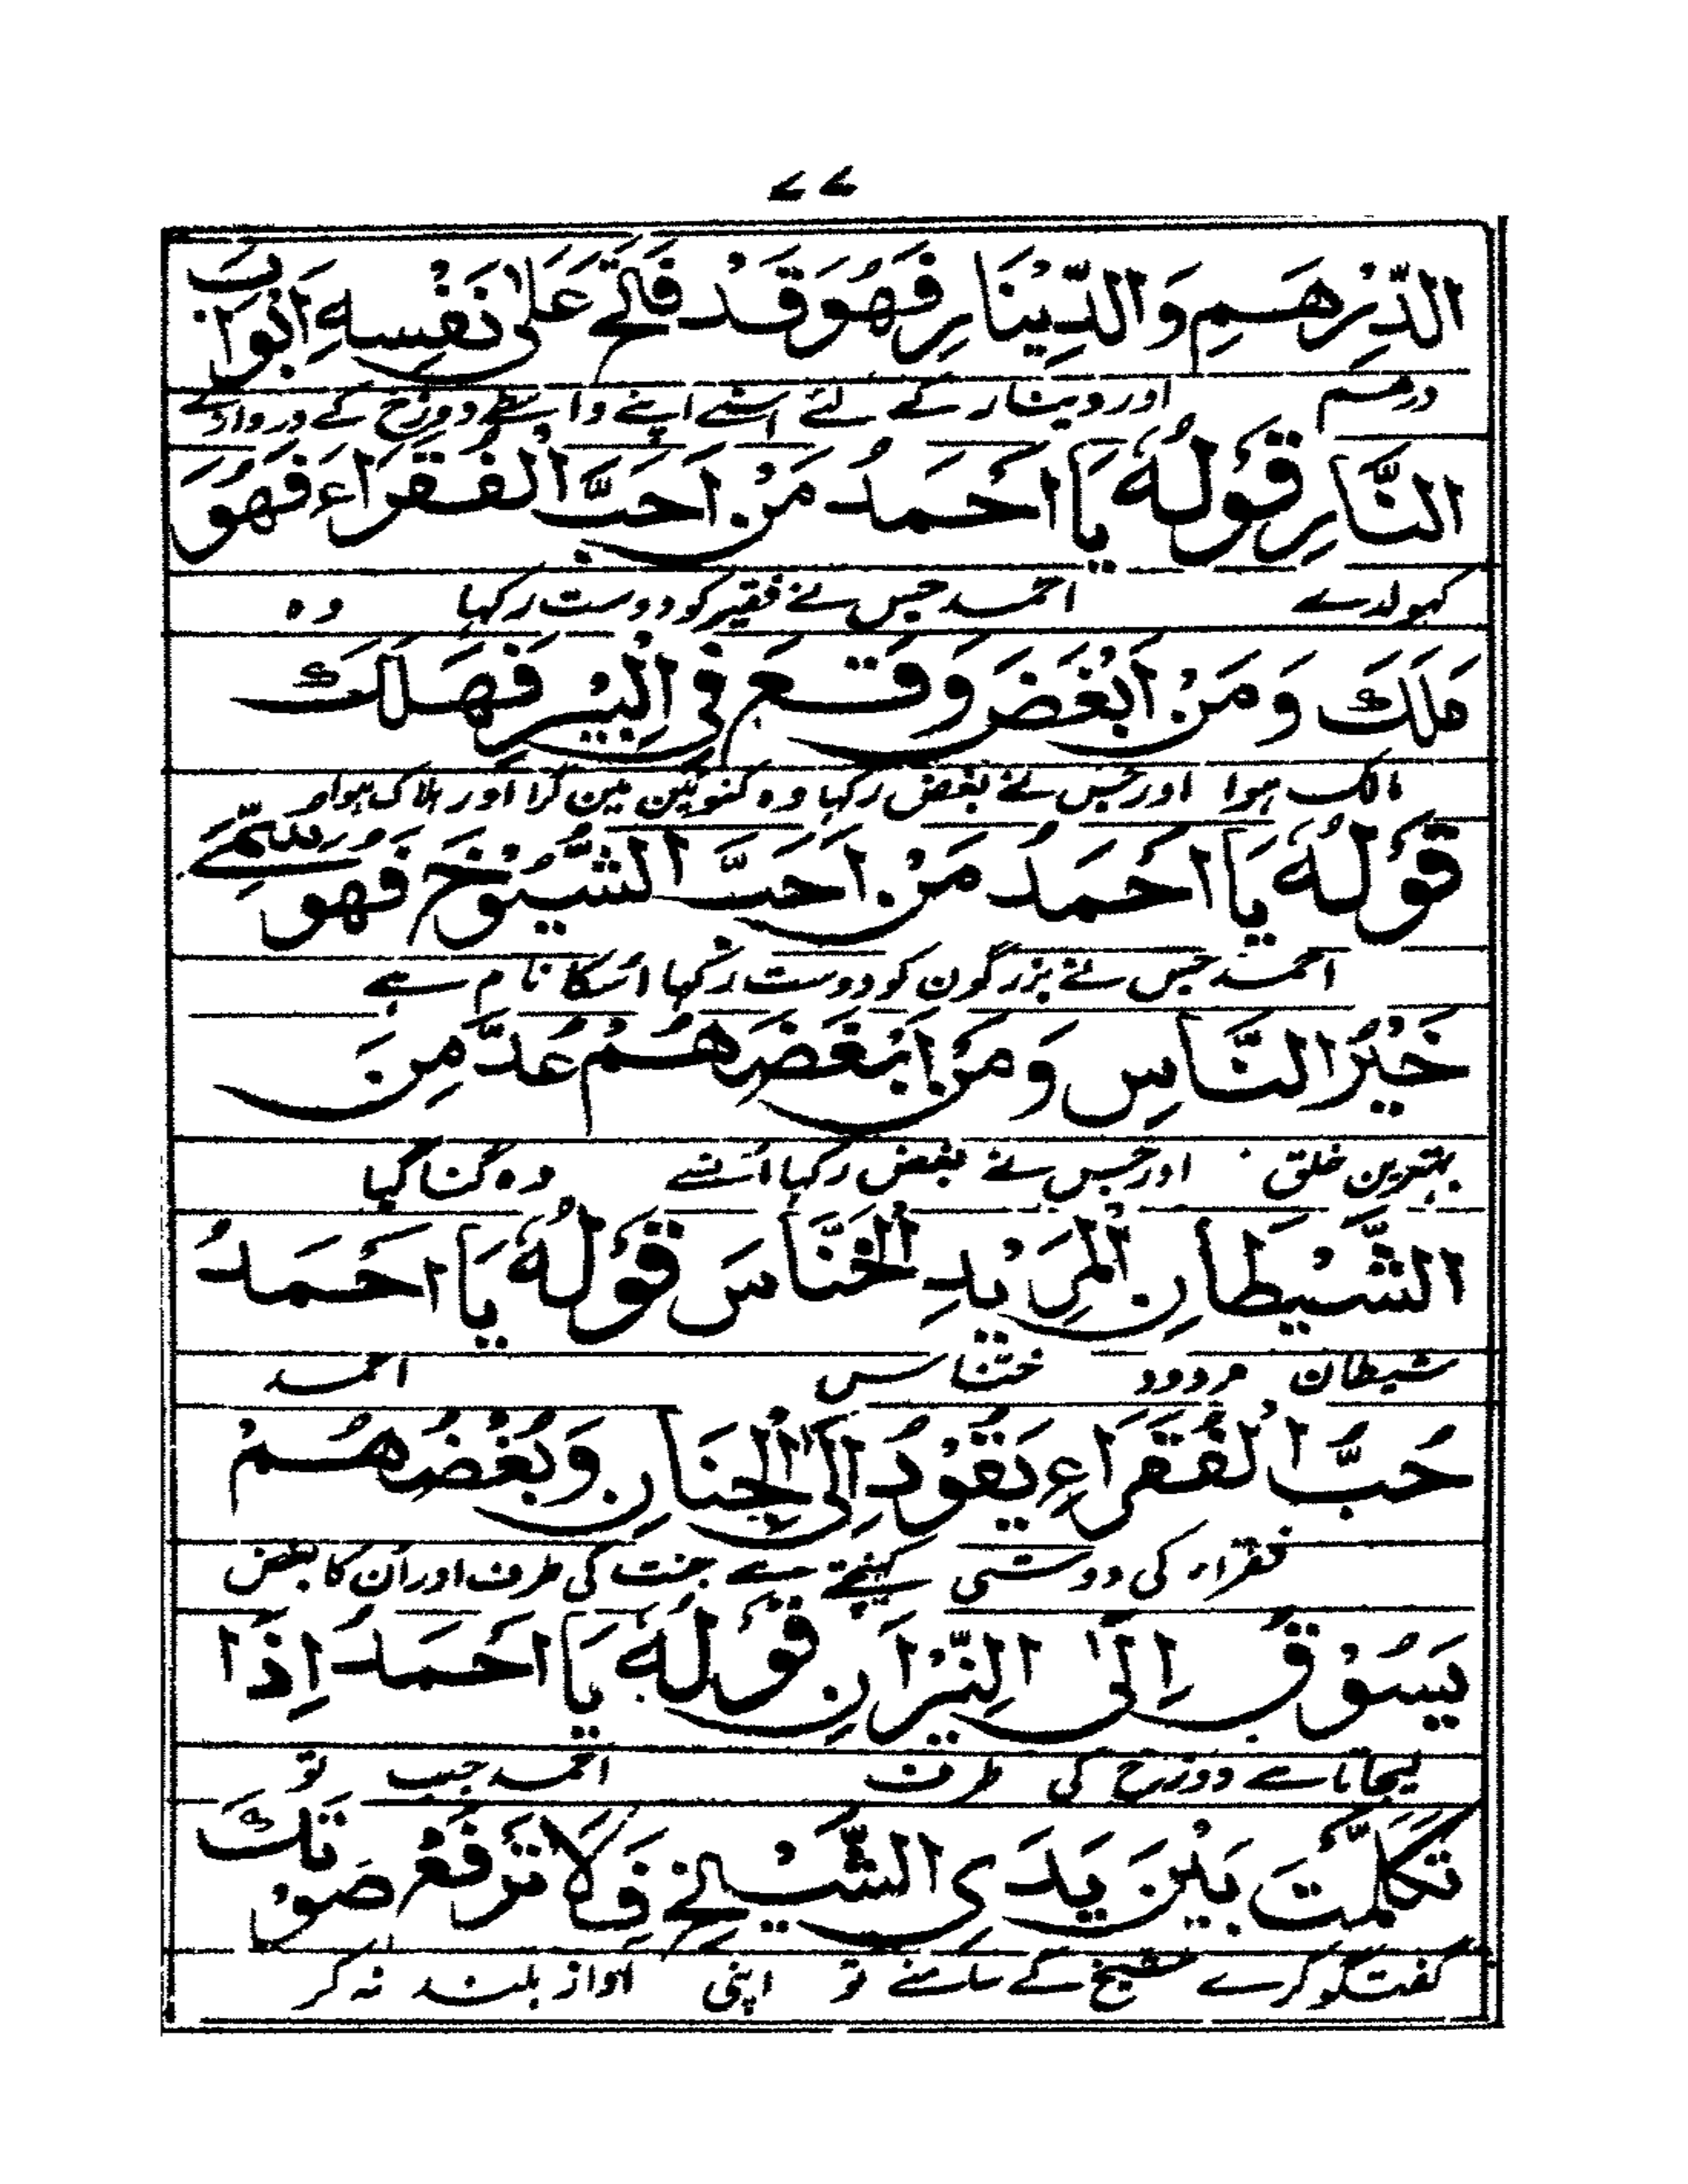 ۷۷
الدِّرْهَمِ وَالدِّيْنَارِ فَهُوَ قَدْ فَاتِحٌ عَلٰى نَفْسِهٖ اَبْوَابَ
درهم اور دینار کے لئے اسنے اپنے واسطے دوزخ کے دروازے
النَّارِ قَوْلُهٗ يَا اَحْمَدُ مَنْ اَحَبَّ الْفُقَرَاءَ فَهُوَ
کہولدے احمد جس نے فقیر کو دوست رکہا وہ
مَلَكَ وَمَنْ اَبْغَضَ وَقَعَ فِي الْبِيْرِ فَهَلَكَ
مالک ہوا اور جس نے بغض رکہا وہ کنوئین مین گرا اور ہلاک ہوا
قَوْلُهٗ يَا اَحْمَدُ مَنْ اَحَبَّ الشُّيُوْخَ فَهُوَ سُمِّيَ
احمد جس نے بزرگون کو دوست رکہا اسکا نام ہے
خَيْرُ النَّاسِ وَمَنْ اَبْغَضَهُمْ عُدَّ مِنَ
بہترین خلق اور جس نے بغض رکہا اُنسے وہ گنا گیا
الشَّيْطَانِ الْمَرِيْدِ الْخَنَّاسَ قَوْلُهٗ يَا اَحْمَدُ
شیطان مردود خنّاس احمد
حُبُّ الْفُقَرَاءِ يَقُوْدُ اِلَى الْجِنَانِ وَبُغْضُهُمْ
فقراء کی دوستی کہینچتے ہے جنت کی طرف اور اُن کا بغض
يَسُوْقُ اِلَى النِّيْرَانِ قَوْلُهٗ يَا اَحْمَدُ اِذَا
لیجاتا ہے دوزخ کی طرف احمد جب تو
تَكَلَّمْتَ بَيْنَ يَدَىِ الشَّيْخِ فَلَا تَرْفَعْ صَوْتَكَ
گفتگو کرے شیخ کے سامنے تو اپنی آواز بلند نہ کر